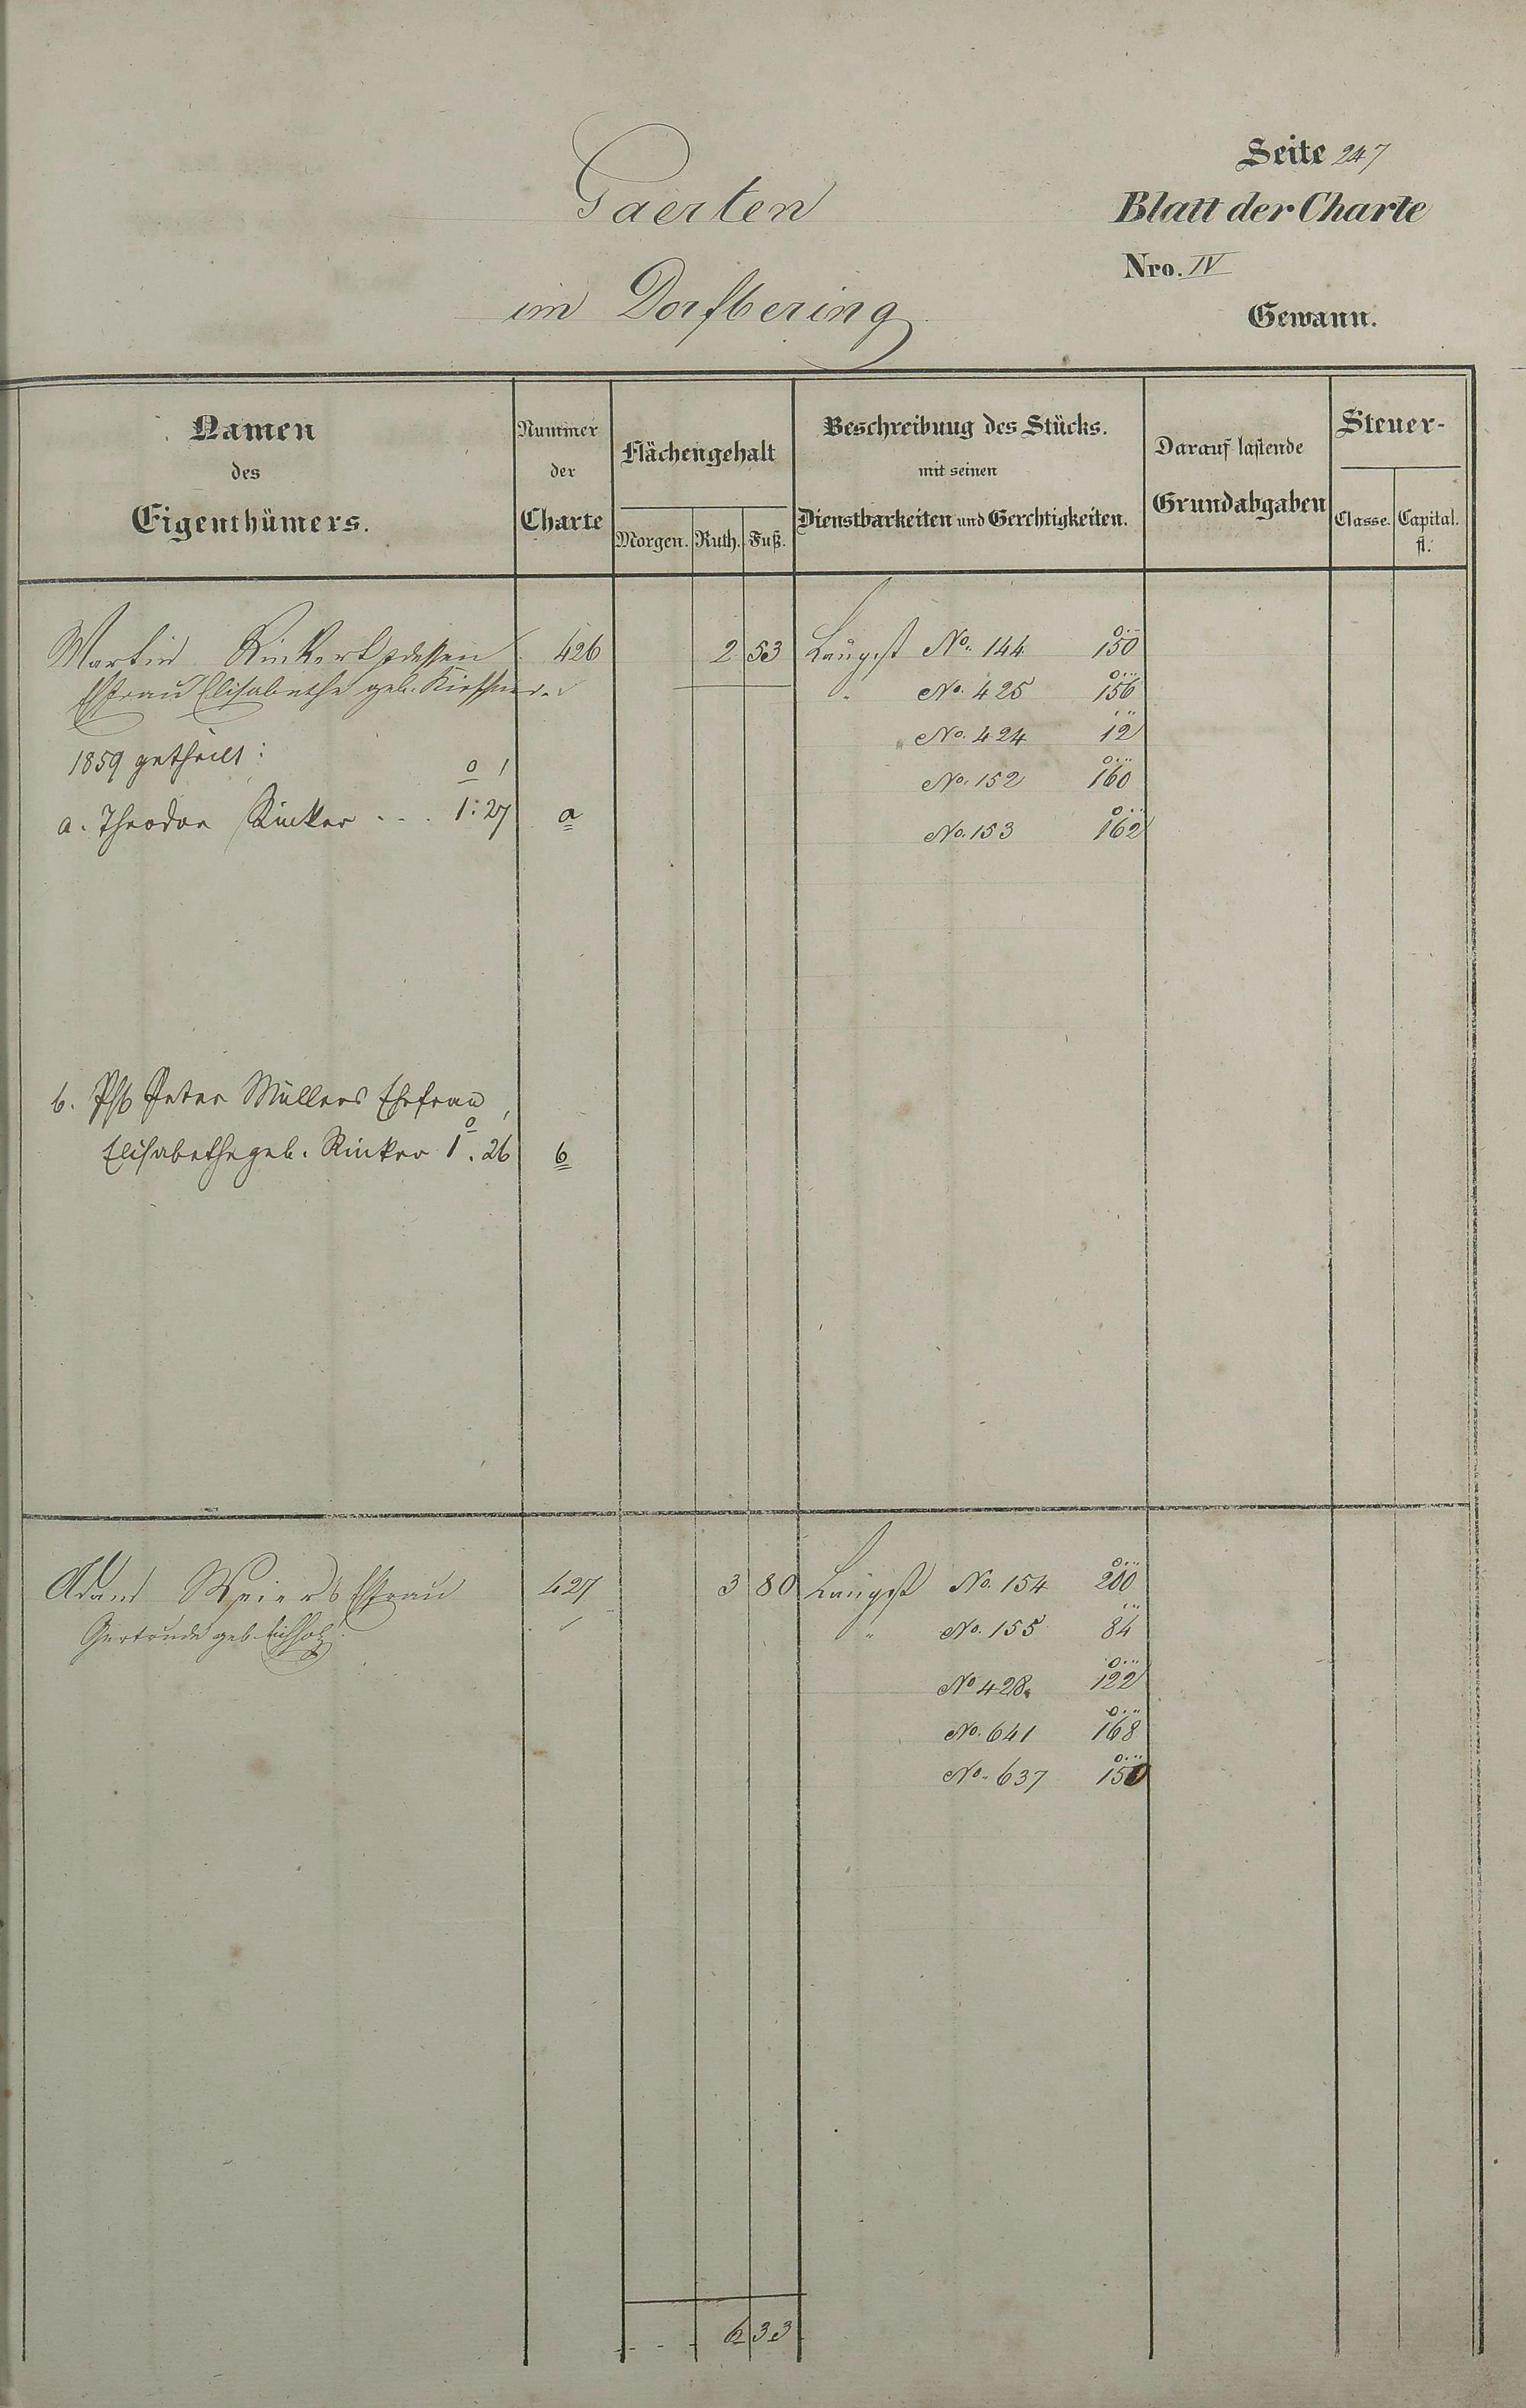 Seite 247
Gaerten
Blatt der Charte
Nro. IV
im Dorfbering
Gewann.
Namen des Eigenthümers.
Nummer der Charte
Flächengehalt
Morgen. Ruth. Fuß.
Beschreibung des Stücks.
mit seinen
Dienstbarkeiten und Gerechtigkeiten.
Darauf lastende
Grundabgaben
Steuer-
Classe. Capital.
fl.
Martin Rinker & dessen 426 2 53 Längst No. 144 150
Ehfrau Elisabethe geb. Kirchner " No. 425 156
1859 getheilt: " No. 424 12
No. 152 160
a. Theodor Rinker . . . 1° 27' a No. 153 162
b. Phb Peter Müllers Ehefrau
Elisabethe geb. Rinker 1° 26' b
Adam Meiers Ehfrau 427 3 80 Längst No. 154 200
Gertrude geb. Eichholz " No. 155 84
No 428. 122
No. 641 168
No. 637 150
6 33